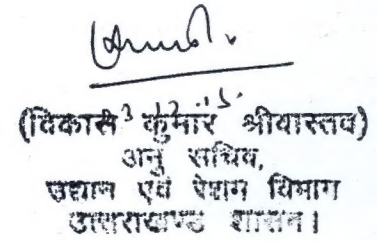 (विकास कुमार श्रीवास्तव)
अनु सचिव,
उद्यान एवं रेशम विभाग
उत्तराखण्ड शासन।